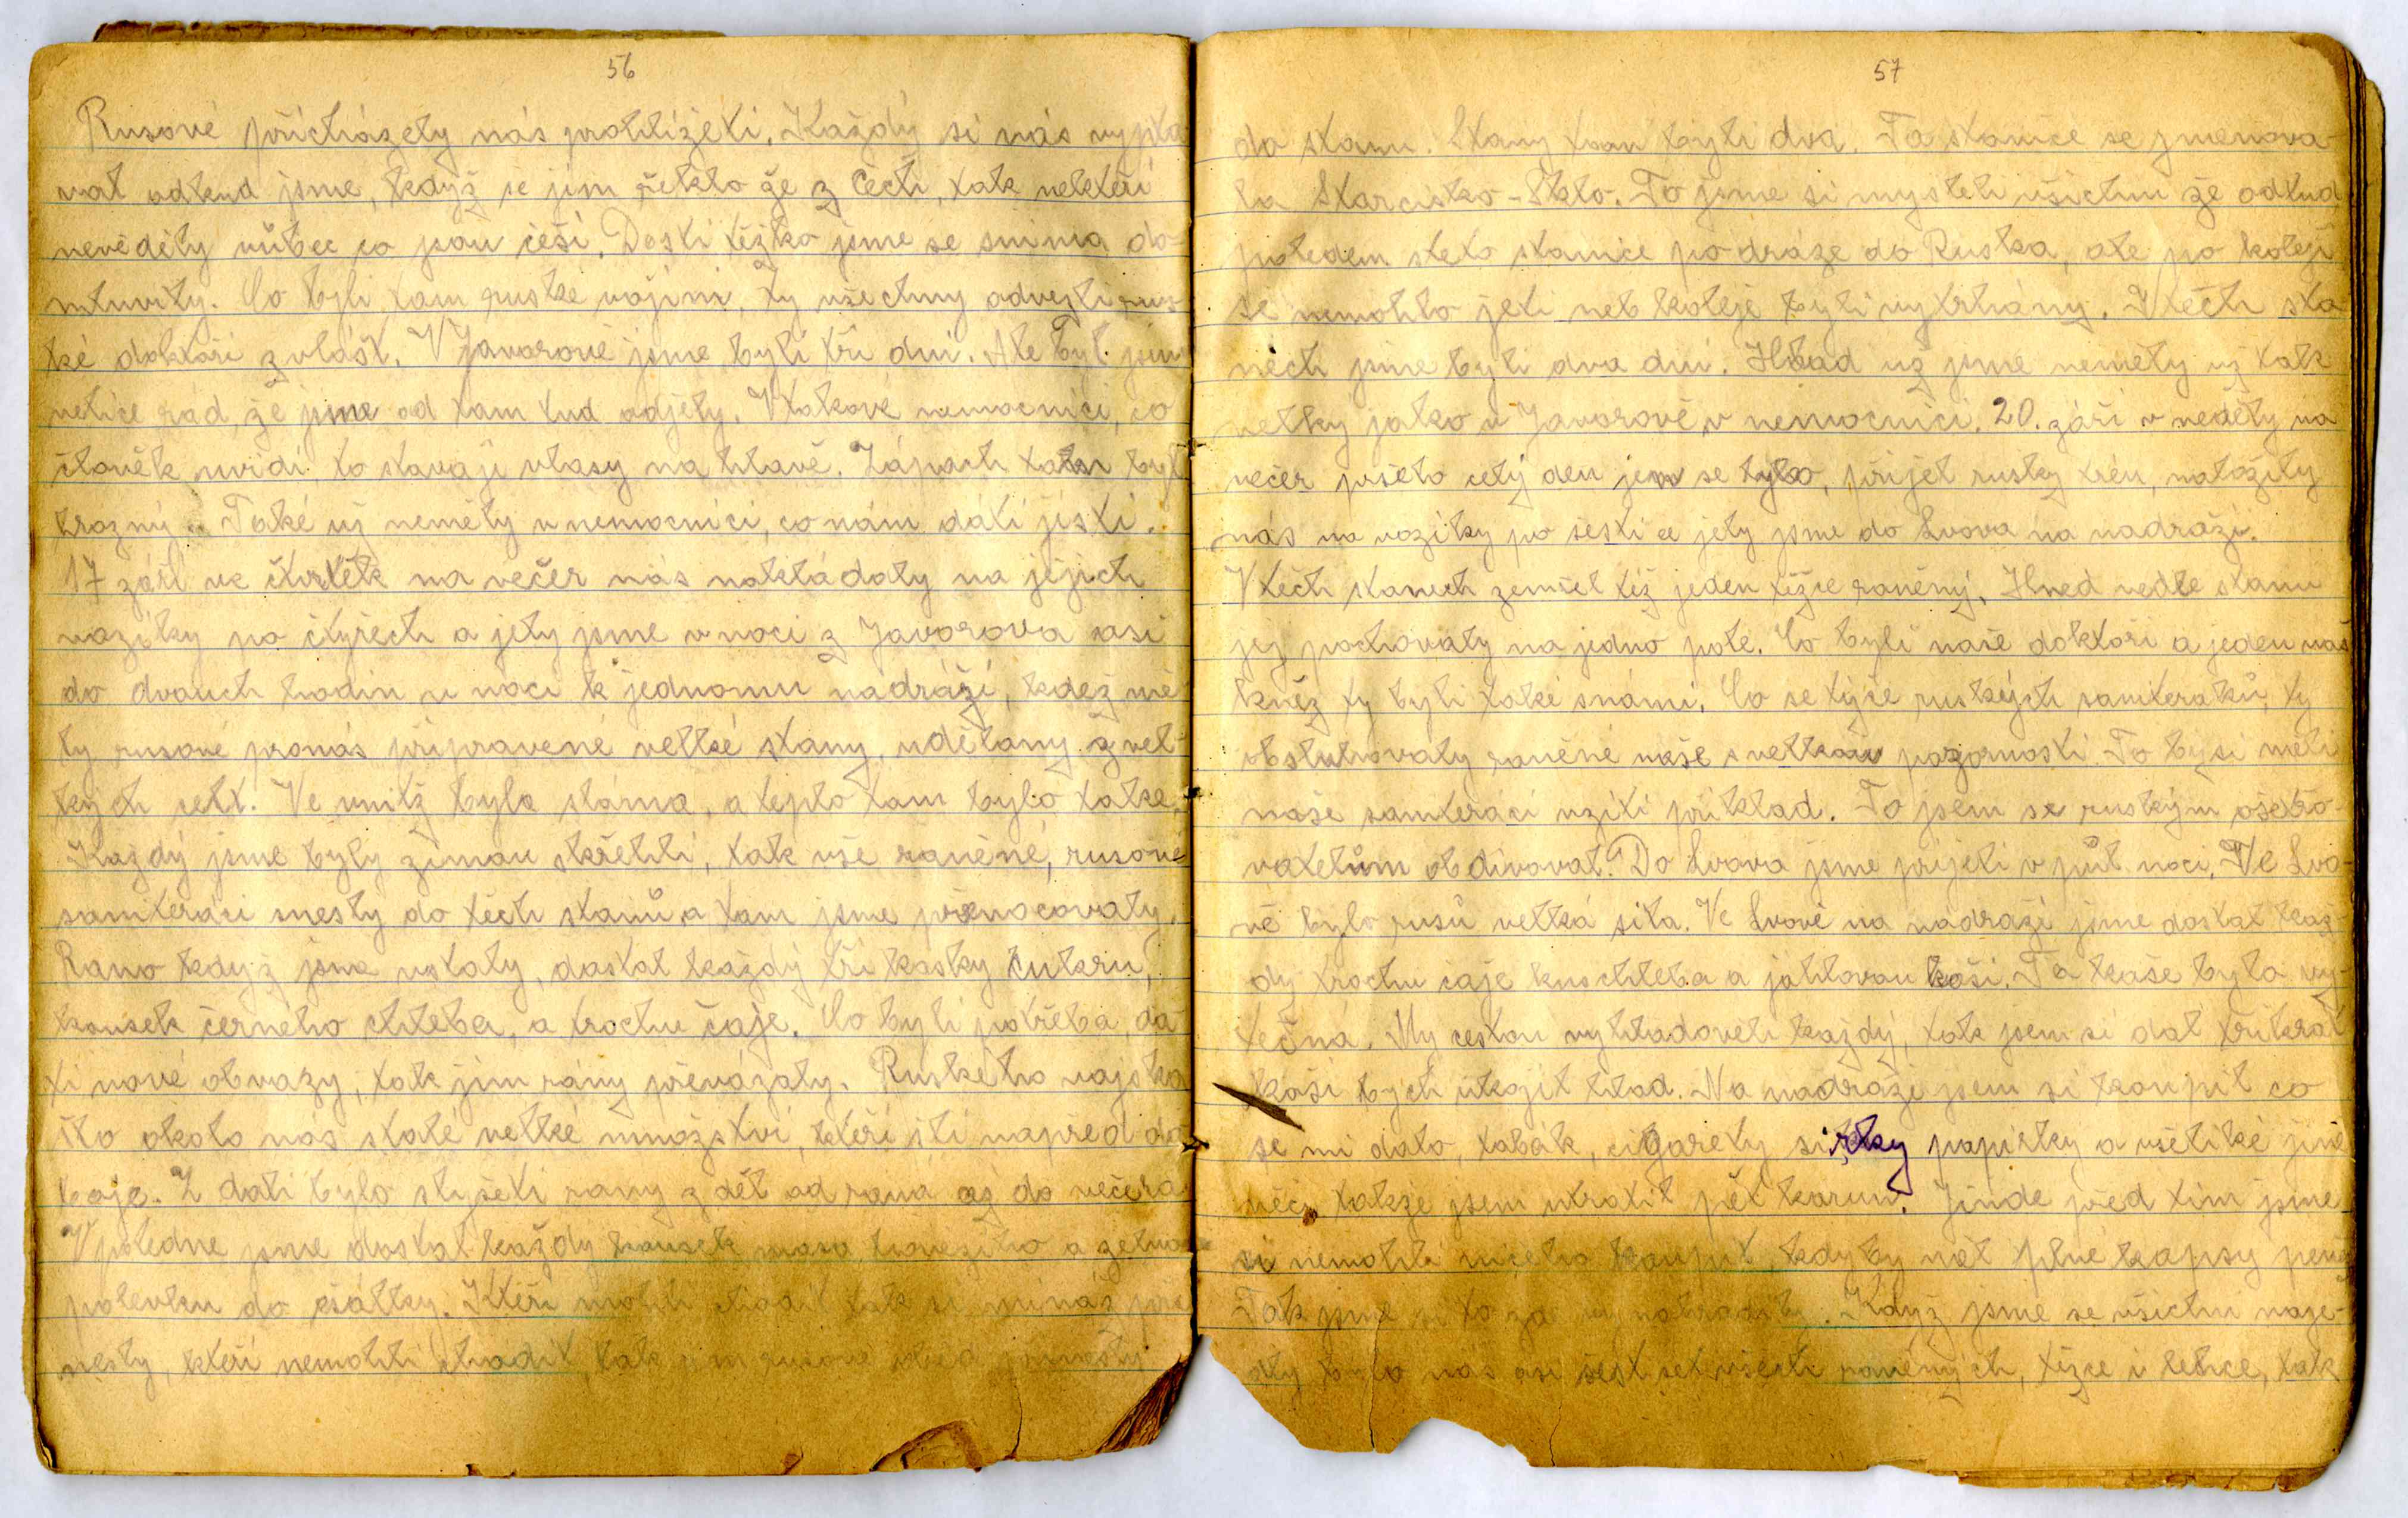 56
Rusové přicházely nás prohlížeti. Každý si nás vypta
val odkud jsme, když se jim řeklo že z Čech, tak nekteří
nevěděly vůbec co jsou češi. Dosti těžko jsme se snima do-
mluvily. Co byli tam ruske vojini, ty všechny odvezli rus
ké doktoři zvlášt. V Javorově jsme byli tři dni. Ale byl jsem
velice rád, že jsme od tam tud odjely. V takové nemocnici, co
člověk uvidí to stavají vlasy na hlavě. Zápach tam byl
hrozný. Také již neměly v nemocnici, co nám dáti jísti.
17 září ve čtvrtek na večer nás nakládaly na jejich
vozíky po čtyřech a jely jsme v noci z Javorova asi
do dvouch hodin v noci k jednomu nádraží, kdež mě
ly rusové pronás připravené velké stany, udělany z vel-
kých celt. Ve vnitř byla sláma, a teplo tam bylo také.
Každý jsme byly zimou skřehlí, tak vše raněné, rusové
saniteráci snesly do těch stanů a tam jsme přenocovaly.
Rano když jsme vstaly, dostal každý tři kostky cukru,
kousek černého chleba, a trochu čaje. Co byli potřeba, da
li nové obvazy, tak jim rány převázaly. Ruského vojska
šlo okolo nás stálé velké množství, kteří šli napřed do
boje. Z dáli bylo slyšeti rány z děl od rána až do večera
V poledne jsme dostal každy kousek masa hovězího a zelnou
polevku do ešálky. Kteří mohli chodit tak si mináž při
nesly, kteří nemohli chodit, tak jim rusové
57
do stanu. Stany tvan byli dva. Ta stanice se jmenova-
la Starcisko-Sklo. To jsme si mysleli všichni že odtud
poledem steto stanice po dráze do Ruska, ale po koleji
se nemohlo jeti neb koleje byli vytrhány. V těch sta
nech jsme byli dva dni. Hlad už jsme neměly už tak
velký jako v Javorově v nemocnici. 20. září v neděly na
večer pršelo celý den jen se lylo, přijel rusky trén, naložily
nás na vozíky po šesti a jely jsme do Lvova na nadraží.
V těch stanech zemřel též jeden těžce raněný. Hned vedle stanu
jej pochovaly na jedno pole. Co byli naše doktoři a jeden náš
kněz ty byli také snámi. Co se týče ruských saniteraků, ty
obsluhovaly raněné naše s velkou pozorností. To by si měli
naše saniteráci vziti příklad. To jsem se ruským ošetřo-
vatelům obdivoval. Do Lvova jsme přijeli v půl noci. Ve Lvo-
vě bylo rusů velká síla. Ve Lvově na nádraží jsme dostal kaž-
dý trochu čaje kus chleba a jáhlovou kaši. Ta kaše byla vý-
tečná. My cestou vyhladověli každý, tak jsem si dal třikrát
kaši bych ukojil hlad. Na nádraží jsem si koupil co
se mi dalo, tabák, cigarety sirky papirky a všeliké jiné
věci, takže jsem utratil pět korun. Jinde před tím jsme
si nemohli ničeho koupit, kdyby měl plné kapsy peněz
Tak jsme si to za vynahradily. Když jsme se všichni naje-
dly bylo nás asi šest set všech raněných, těžce i lehce, tak